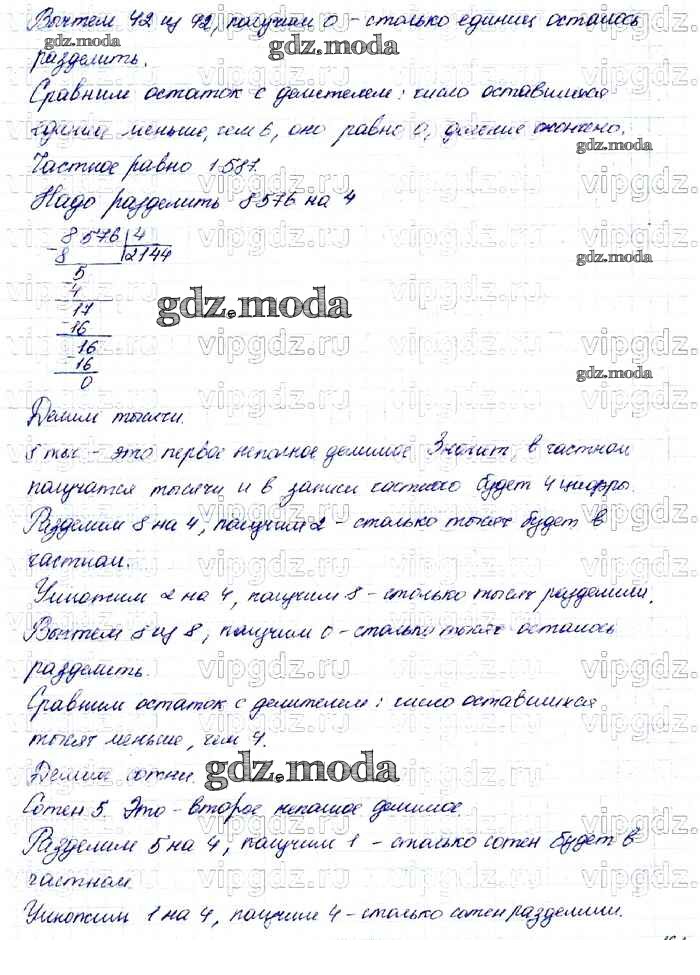 Вычтем 42 из 42, получим 0 - столько единиц осталось
разделить.
Сравним остаток с делителем: число оставшихся
единиц меньше, чем 6, оно равно 0, деление окончено.
Частное равно 1587.
Надо разделить 8576 на 4
8576 4
-8 2144
5
-4
17
-16
16
-16
0
Делим тысячи.
8 тыс - это первое неполное делимое. Значит, в частном
получатся тысячи и в записи частного будет 4 цифры.
Разделим 8 на 4, получим 2 - столько тысяч будет в
частном.
Умножим 2 на 4, получим 8 - столько тысяч разделили.
Вычтем 8 из 8, получим 0 - столько тысяч осталось
разделить.
Сравним остаток с делителем: число оставшихся
тысяч меньше, чем 4.
Делим сотни.
Сотен 5. Это - второе неполное делимое.
Разделим 5 на 4, получим 1 - столько сотен будет в
частном.
Умножим 1 на 4, получим 4 - столько сотен разделили.
gdz.moda
vipgdz.ru